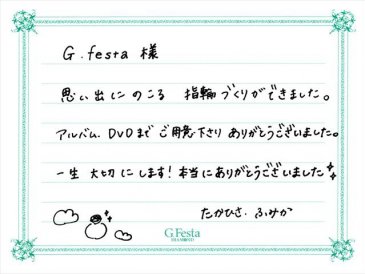 G.festa 様
思い出にのこる 指輪づくりができました。
アルバム DVDまで ご用意下さり ありがとうございました。
一生 大切にします!本当にありがとうございました
たかひさ.ふみか
G.Festa
DIAMOND